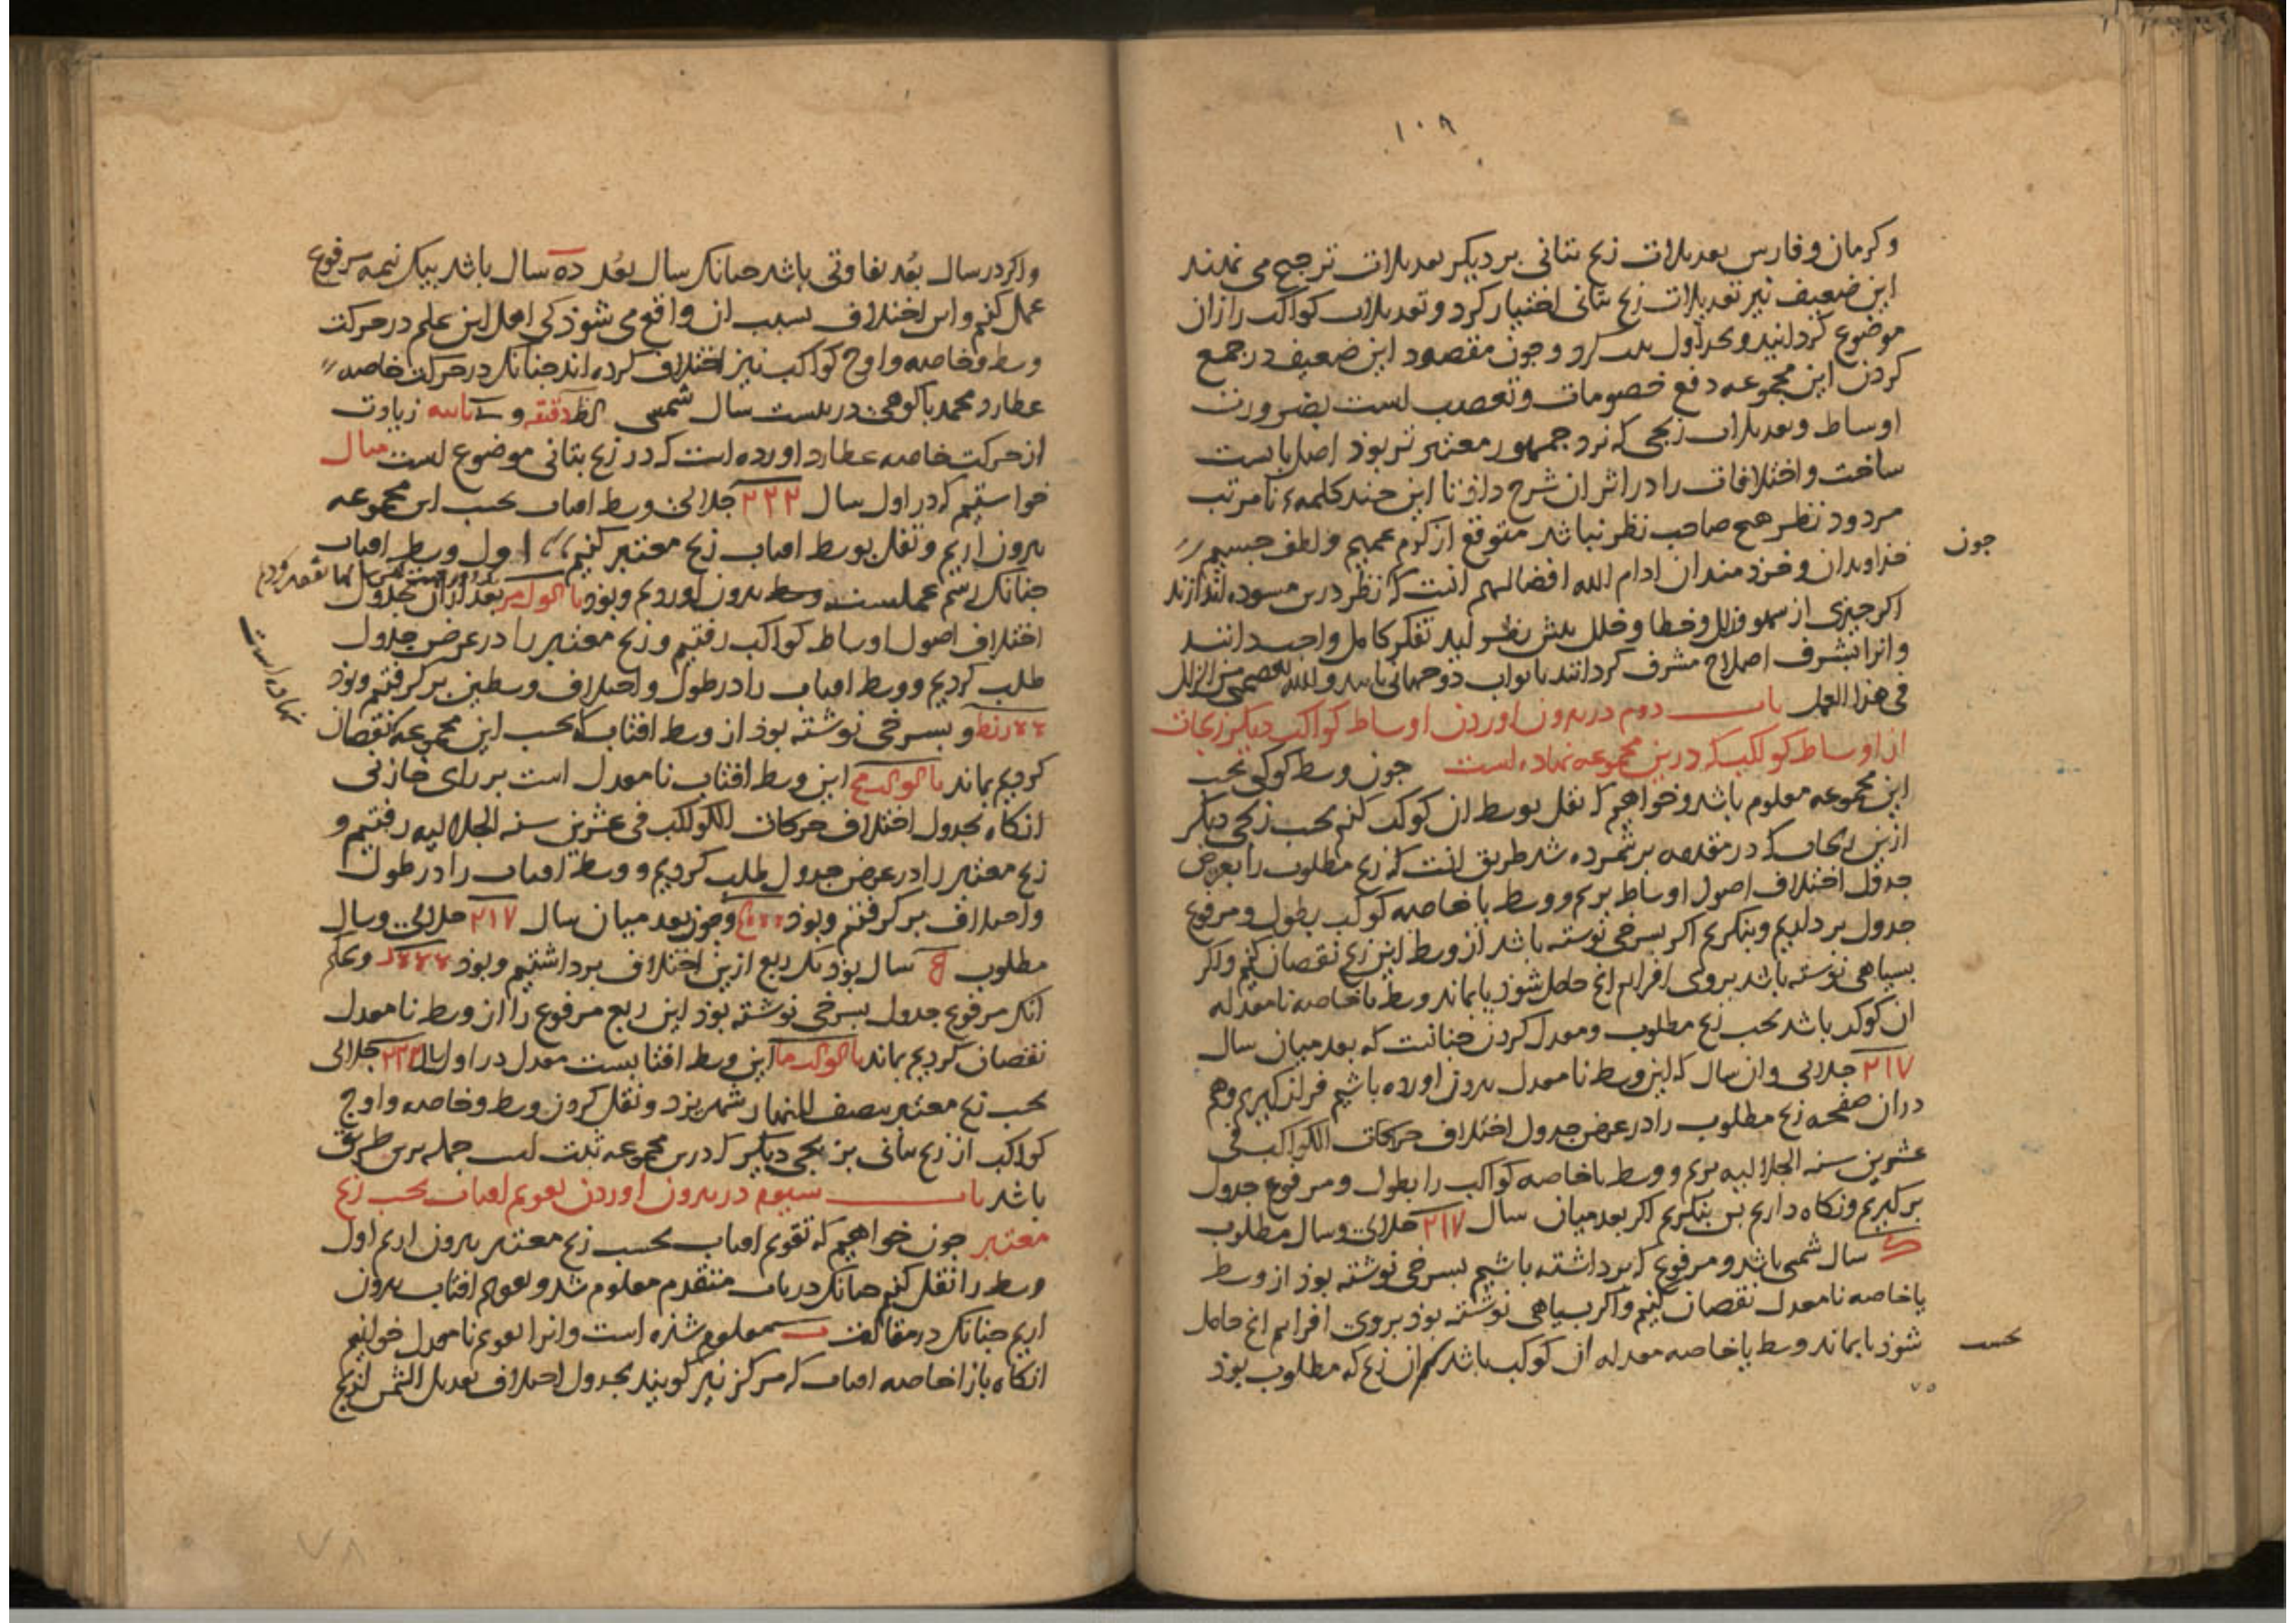 ۱۰۸
و کرمان و فارس تعدیلات زیج بتانی بر دیکر تعدیلات ترجیح می نهند
این ضعیف نیز تعدیلات زیج بتانی اختیار کرد و تعدیلات کواکب را از ان
موضوع کردانید و بجداول کرد و جون مقصود این ضعیف در جمع
کردن این مجموعه دفع خصومات و تعصب است بضرورت
اوساط و تعدیلات زیجی که نزد جمهور معتبر تر بوذ اصل بایست
ساخت و اختلافات را در اثر ان شرح داذ تا این جند کلمه نامرتب
مردود نظر هیج صاحب نظر نباشد متوقع از کرم عمیم و لطف جسیم
جون
خذاوندان و خردمندان ادام الله افضالهم انست که نظر درین مسوده اندازند
اکر جیزی از سهو و زلل و خطا و خلل بیش نظر اید تفکر کامل واجب دانند
و انرا بشرف اصلاح مشرف کردانند تا ثواب دوجهانی یابند و الله یعصمنی من الزلل
فی هذا العمل باب دوم در بیرون اوردن اوساط کواکب دیکر زیجات
از اوساط کواکب که درین مجموعه نهاده است جون وسط کوکبی بحسب
این مجموعه معلوم باشد و خواهیم که نقل بوسط ان کوکب کنیم بحسب زیجی دیکر
ازین زیجات که در مقدمه بر شمرده شد طریق انست که زیج مطلوب را بعرض
جدول اختلاف اصول اوساط بریم و وسط یا خاصه کوکب بطول و مرفوع
جدول برداریم و بنکریم اکر بسرخی نوشته باشد از وسط این زیج نقصان کنیم و اکر
بسیاهی نوشته باشد بروی افزایم انج حاصل شوذ یا بماند وسط یا خاصه نامعدله
ان کوکب باشد بحسب زیج مطلوب و معدل کردن جنانست که بعد میان سال
۲۱۷ جلالی و ان سال که این وسط نامعدل بیرون اورده باشیم فراز کیریم و هم
در ان صفحه زیج مطلوب را در عرض جدول اختلاف حرکات الکواکب فی
عشرین سنه الجلالیه بریم و وسط یا خاصه کواکب را بطول و مرفوع جدول
بر کیریم و نکاه داریم بس بنکریم اکر بعد میان سال ۲۱۷ جلالی و سال مطلوب
ک سال شمسی باشد و مرفوع که برداشته باشیم بسرخی نوشته بوذ از وسط
یا خاصه نامعدل نقصان کنیم و اکر بسیاهی نوشته بوذ بروی افزایم انج حاصل
شوذ یا بماند وسط یا خاصه معدله ان کوکب باشد ان زیج که مطلوب بوذ
بحسب
و اکر در سال بعد تفاوتی باشد جنانک سال بعد ده سال باشد بیک نیمه مرفوع
عمل کنیم و این اختلاف بسبب ان واقع می شوذ کی اهل این علم در حرکت
وسط و خاصه و اوج کواکب نیز اختلاف کرده اند جنانک در حرکت خاصه
عطارد محمد باکوهی در بیست سال شمسی دقیقه و ثانیه زیادت
از حرکت خاصه عطارد اورده است که در زیج بتانی موضوع است مثال
خواستیم که در اول سال ۲۲۲ جلالی وسط افتاب بحسب این مجموعه
بیرون اریم و نقل بوسط افتاب زیج معتبر کنیم اول وسط افتاب
جنانک رسم عملست بیرون اوردیم و بوذ بعد ازان بجدول
نهاده است
اختلاف اصول اوساط کواکب رفتیم و زیج معتبر را در عرض جدول
طلب کردیم و وسط افتاب را در طول و اختلاف وسطین بر کرفتیم و بوذ
و بسرخی نوشته بوذ از وسط افتاب که بحسب این مجموعه نقصان
کردیم بماند این وسط افتاب نامعدل است بر رای خازنی
انکاه بجدول اختلاف حرکات الکواکب فی عشرین سنه الجلالیه رفتیم و
زیج معتبر را در عرض جدول طلب کردیم و وسط افتاب را در طول
و اختلاف بر کرفتیم و بوذ و جون بعد میان سال ۲۱۷ جلالی و سال
مطلوب ه سال بوذ یک ربع ازین اختلاف برداشتیم و بوذ و بحکم
انک مرفوع جدول بسرخی نوشته بوذ این ربع مرفوع را از وسط نامعدل
نقصان کردیم بماند این وسط افتابست معدل در اول سال ۲۲۲ جلالی
بحسب زیج معتبر بنصف النهار شهر یزد و نقل کردن وسط و خاصه و اوج
کواکب از زیج بتانی بزیجی دیکر که درین مجموعه ثبت است جمله برین طریق
باشد باب سیوم در بیرون اوردن تقویم افتاب بحسب زیج
معتبر جون خواهیم که تقویم افتاب بحسب زیج معتبر بیرون اریم اول
وسط را نقل کنیم جنانک در باب متقدم معلوم شد و تقویم افتاب بیرون
اریم جنانک در مقالت معلوم شذه است و انرا تقویم نامعدل خوانیم
انکاه بازا خاصه افتاب که مرکز نیز کویند بجدول اختلاف تعدیل الشمس
۷۸